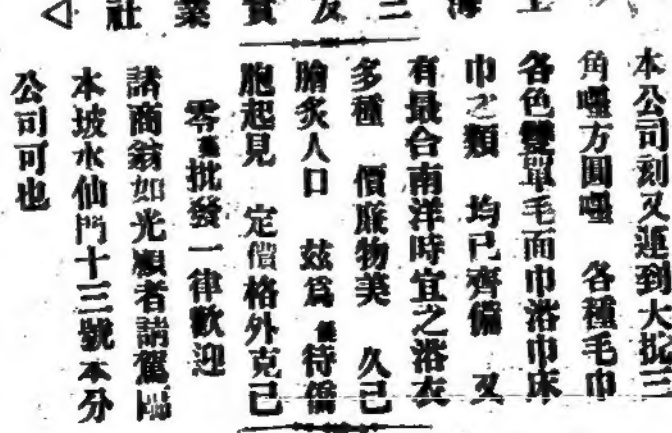 上海三友實業社
本公司刻又運到大批三
角嘜方圓嘜 各種毛巾
各色雙單毛面巾浴巾床
巾之類 均已齊備 又
有最合南洋時宜之浴衣
多種 價廉物美 久已
膾炙人口 茲爲優待僑
胞起見 定價格外克己
零批發一律歡迎
諸商翁如光顧者請駕臨
本坡水仙門十三號本分
公司可也